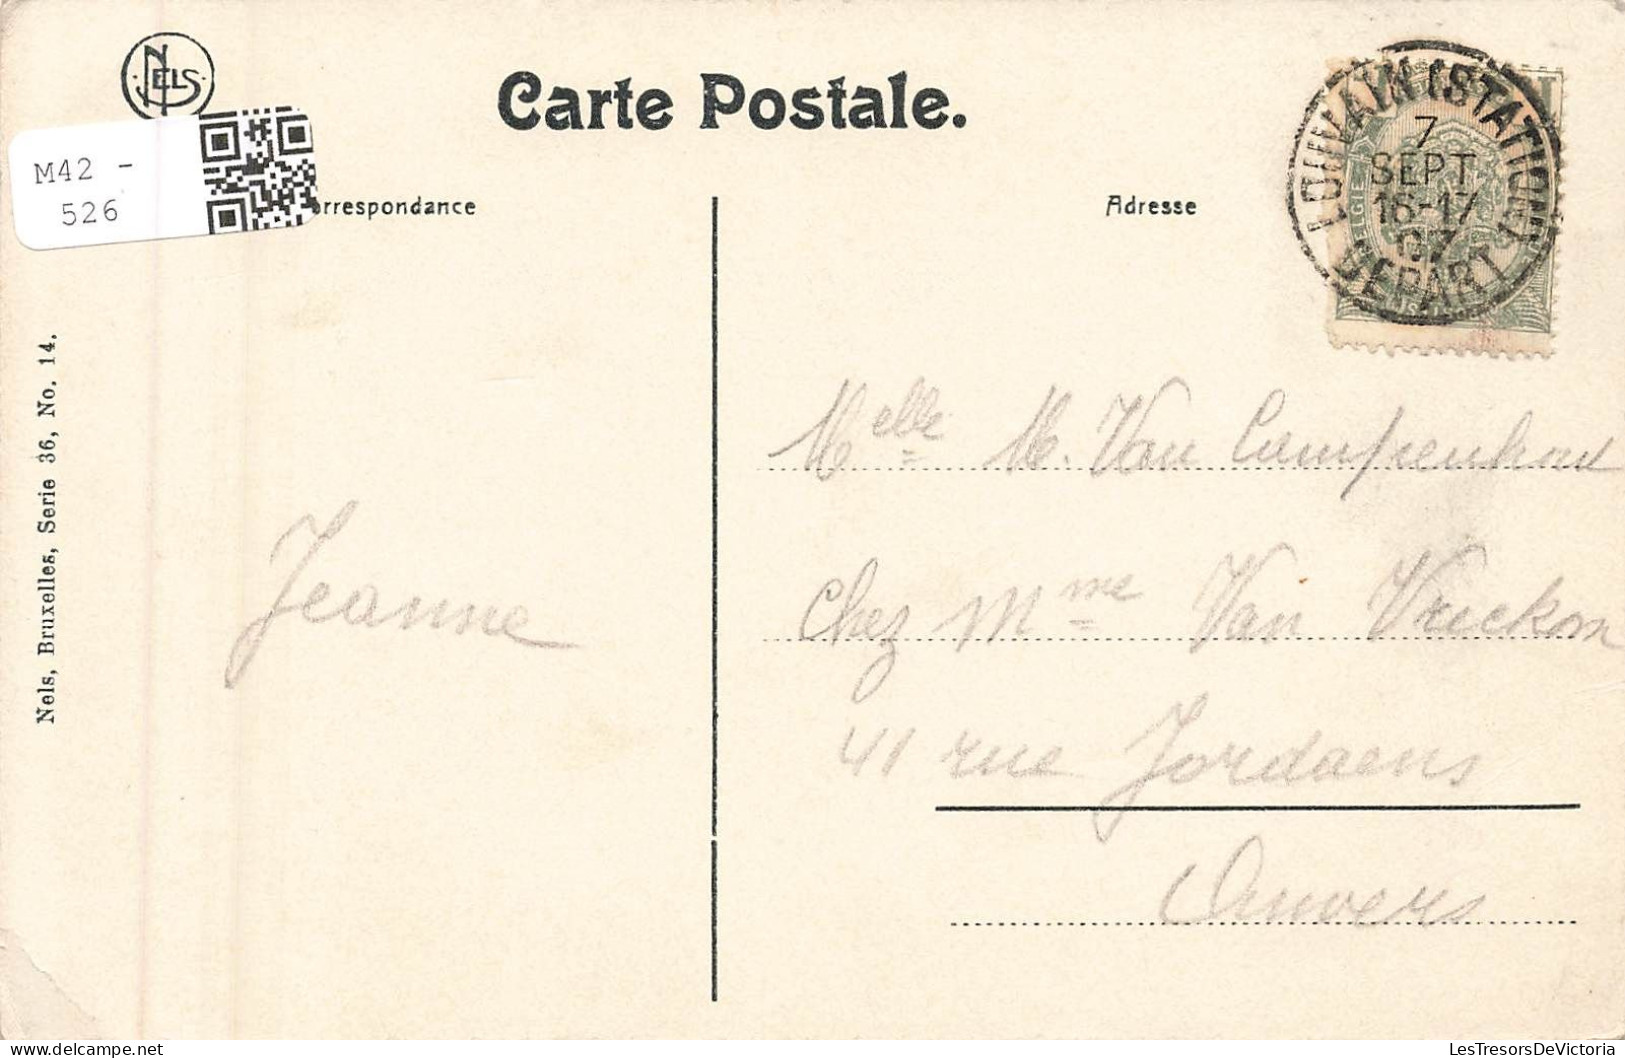 NELS
Carte Postale.
M42 -
526
orrespondance
Adresse
LOUVAIN (STATION)
7
SEPT
16-17
07
DEPART
Nels, Bruxelles, Serie 36, No. 14.
Melle M. Van Campenhout
Chez Mme Van Vrieckom
41 rue Jordaens
Anvers
Jeanne
LesTresorsDeVictoria